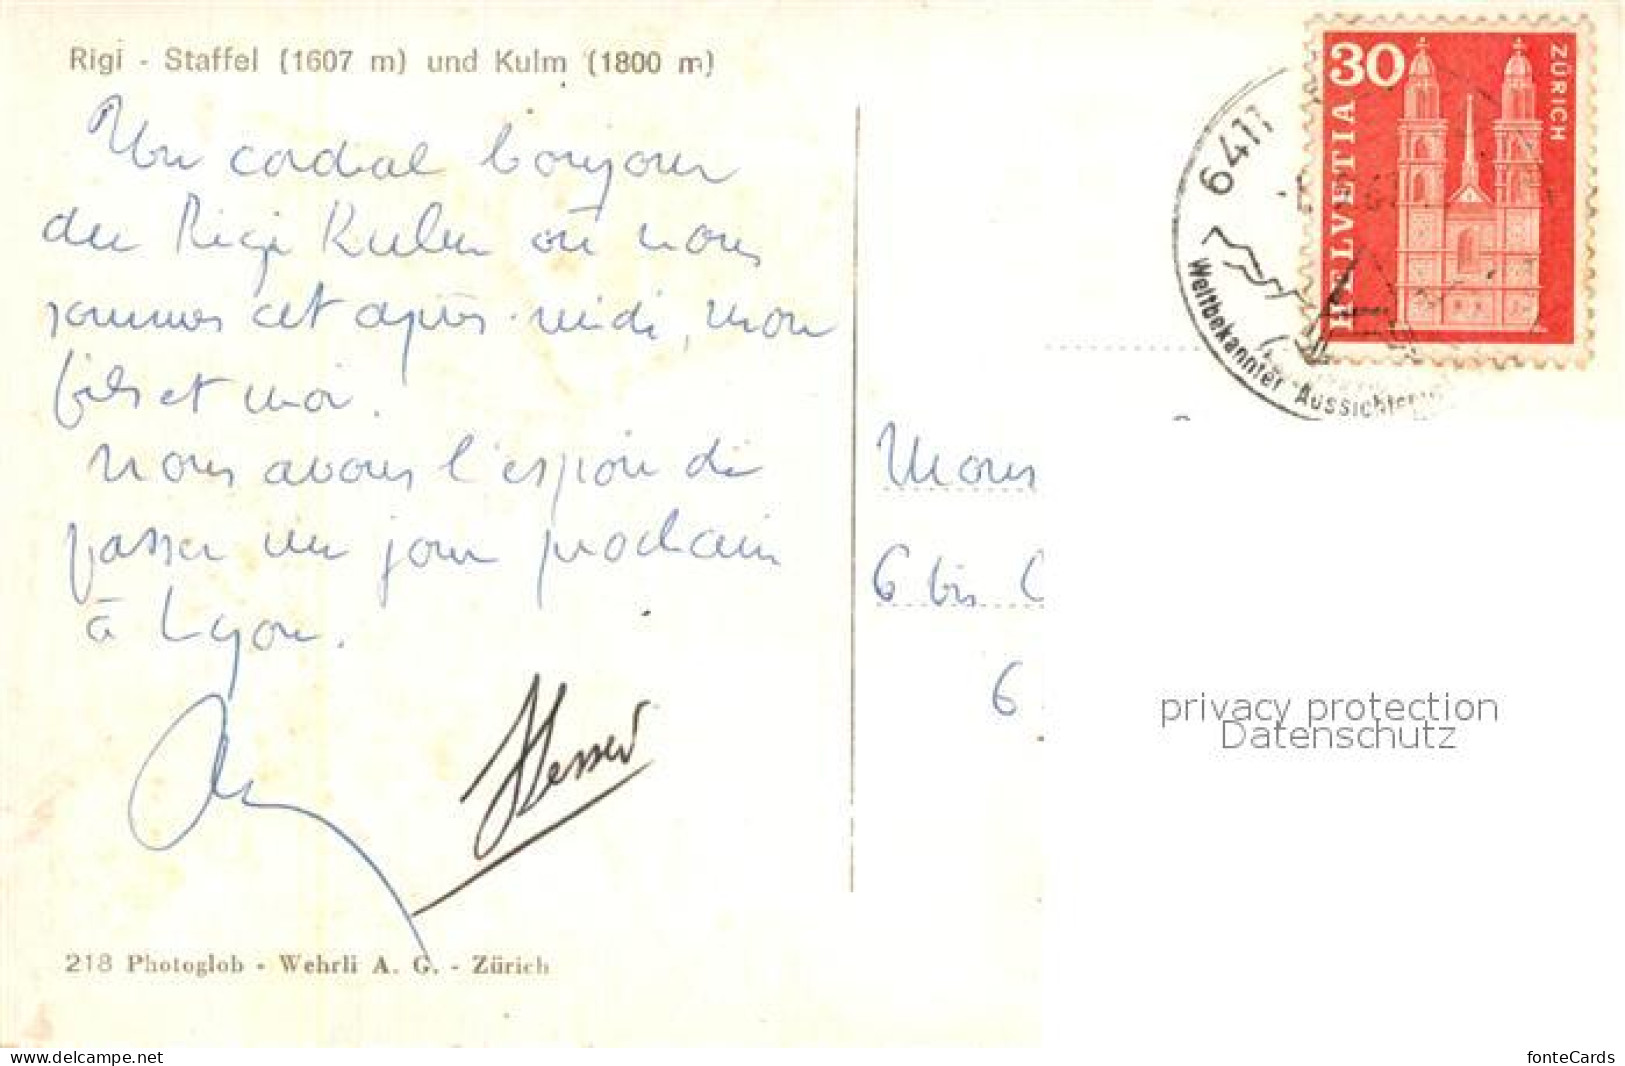 Rigi - Staffel (1607 m) und Kulm (1800 m)
Un cordial bonjour
du Rigi Kulm où nous
sommes cet après-midi, mon
fils et moi.
Nous avons l'espoir de
passer un jour prochain
à Lyon.
218 Photoglob - Wehrli A. G. - Zürich
30
ZÜRICH
HELVETIA
6411
Weltbekannter Aussichts
Mons
6 bis
6
privacy protection
Datenschutz
www.delcampe.net
fonteCards